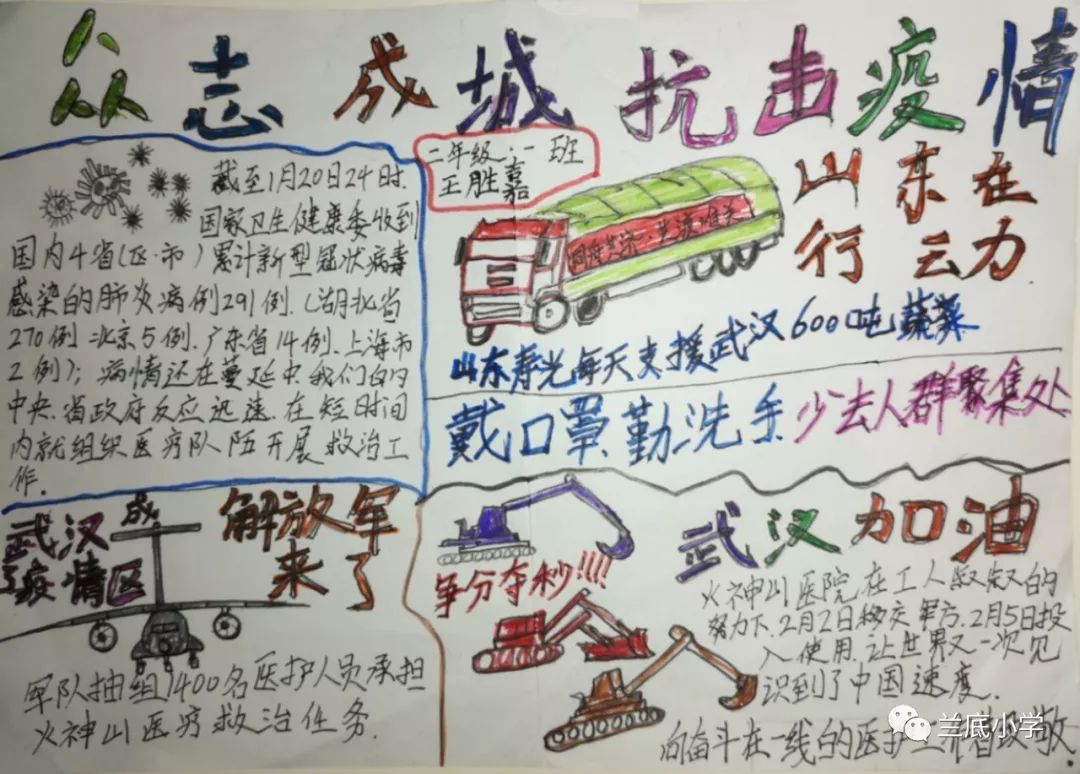 众志成城抗击疫情
二年级·一班
王胜嘉
截至1月20日24时.
国家卫生健康委收到
国内4省(区·市)累计新型冠状病毒
感染的肺炎病例291例.(湖北省
270例.北京5例.广东省14例.上海市
2例);病情还在蔓延中.我们的
中央.省政府反应迅速.在短时间
内就组织医疗队陌开展救治工
作.
山东在
行云力
同舟共济
山东寿光每天支援武汉600吨蔬菜
戴口罩.勤洗手.少去人群聚集处
武汉成
了疫情区
解放军
来了
军队抽组1400名医护人员承担
火神山医疗救治任务.
争分夺秒!!!!
武汉加油
火神山医院在工人叔叔的
努力下.2月2日移交军方.2月5日投
入使用.让世界又一次见
识到了中国速度.
向奋斗在一线的医护工作者致敬.
兰底小学